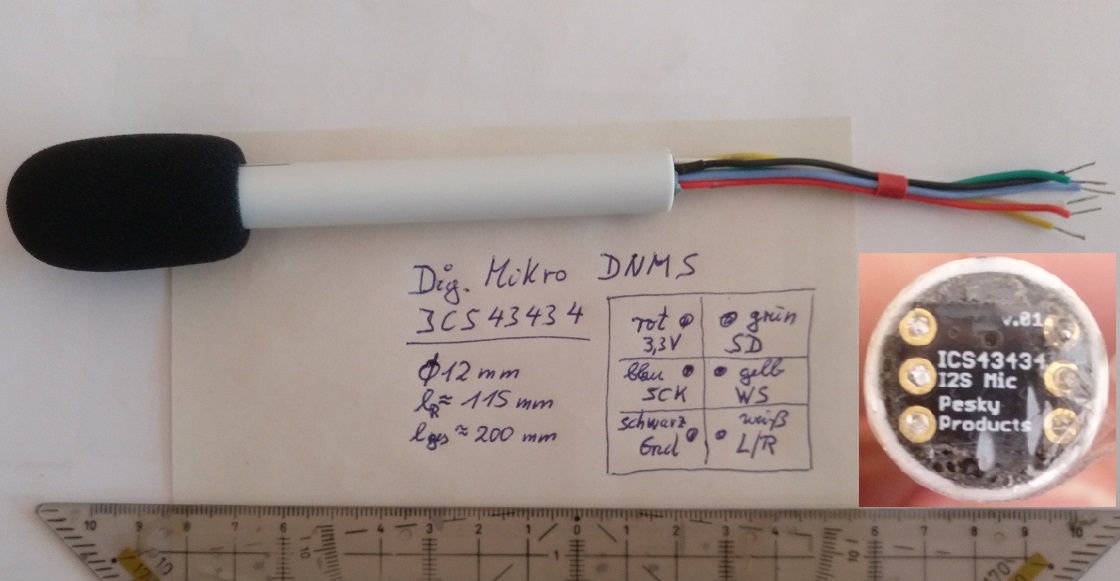 Dig. Mikro DNMS
ICS43434
Ø12 mm
lR ≈ 115 mm
lges ≈ 200 mm
rot grün
3,3V SD
blau gelb
SCK WS
schwarz weiß
Gnd L/R
v.01
ICS43434
I2S Mic
Pesky
Products
10 9 8 7 6 5 4 3 2 1 0 1 2 3 4 5 6 7 8 9 10
1